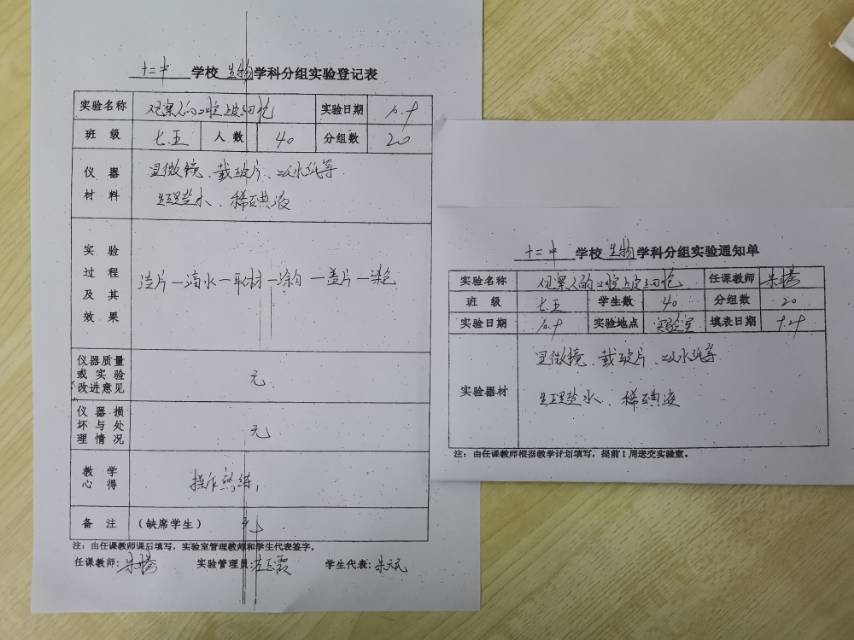 十二中 学校 生物 学科分组实验登记表
实验名称 观察人的口腔上皮细胞 实验日期
班级 七.五 人数 40 分组数 20
仪器材料 显微镜、载玻片、吸水纸等
生理盐水、稀碘液
实验过程及其效果 洁片—滴水—取材—涂匀—盖片—染色
仪器质量或实验改进意见 无
仪器损坏与处理情况 无
教学心得 操作熟练
备注 (缺席学生) 无
注：由任课教师课后填写，实验室管理教师和学生代表签字。
任课教师: 实验管理员: 学生代表:
十二中 学校 生物 学科分组实验通知单
实验名称 观察人的口腔上皮细胞 任课教师
班级 七.五 学生数 40 分组数 20
实验日期 实验地点 实验室 填表日期
实验器材 显微镜、载玻片、吸水纸等
生理盐水、稀碘液
注：由任课教师根据教学计划填写，提前1周送交实验室。